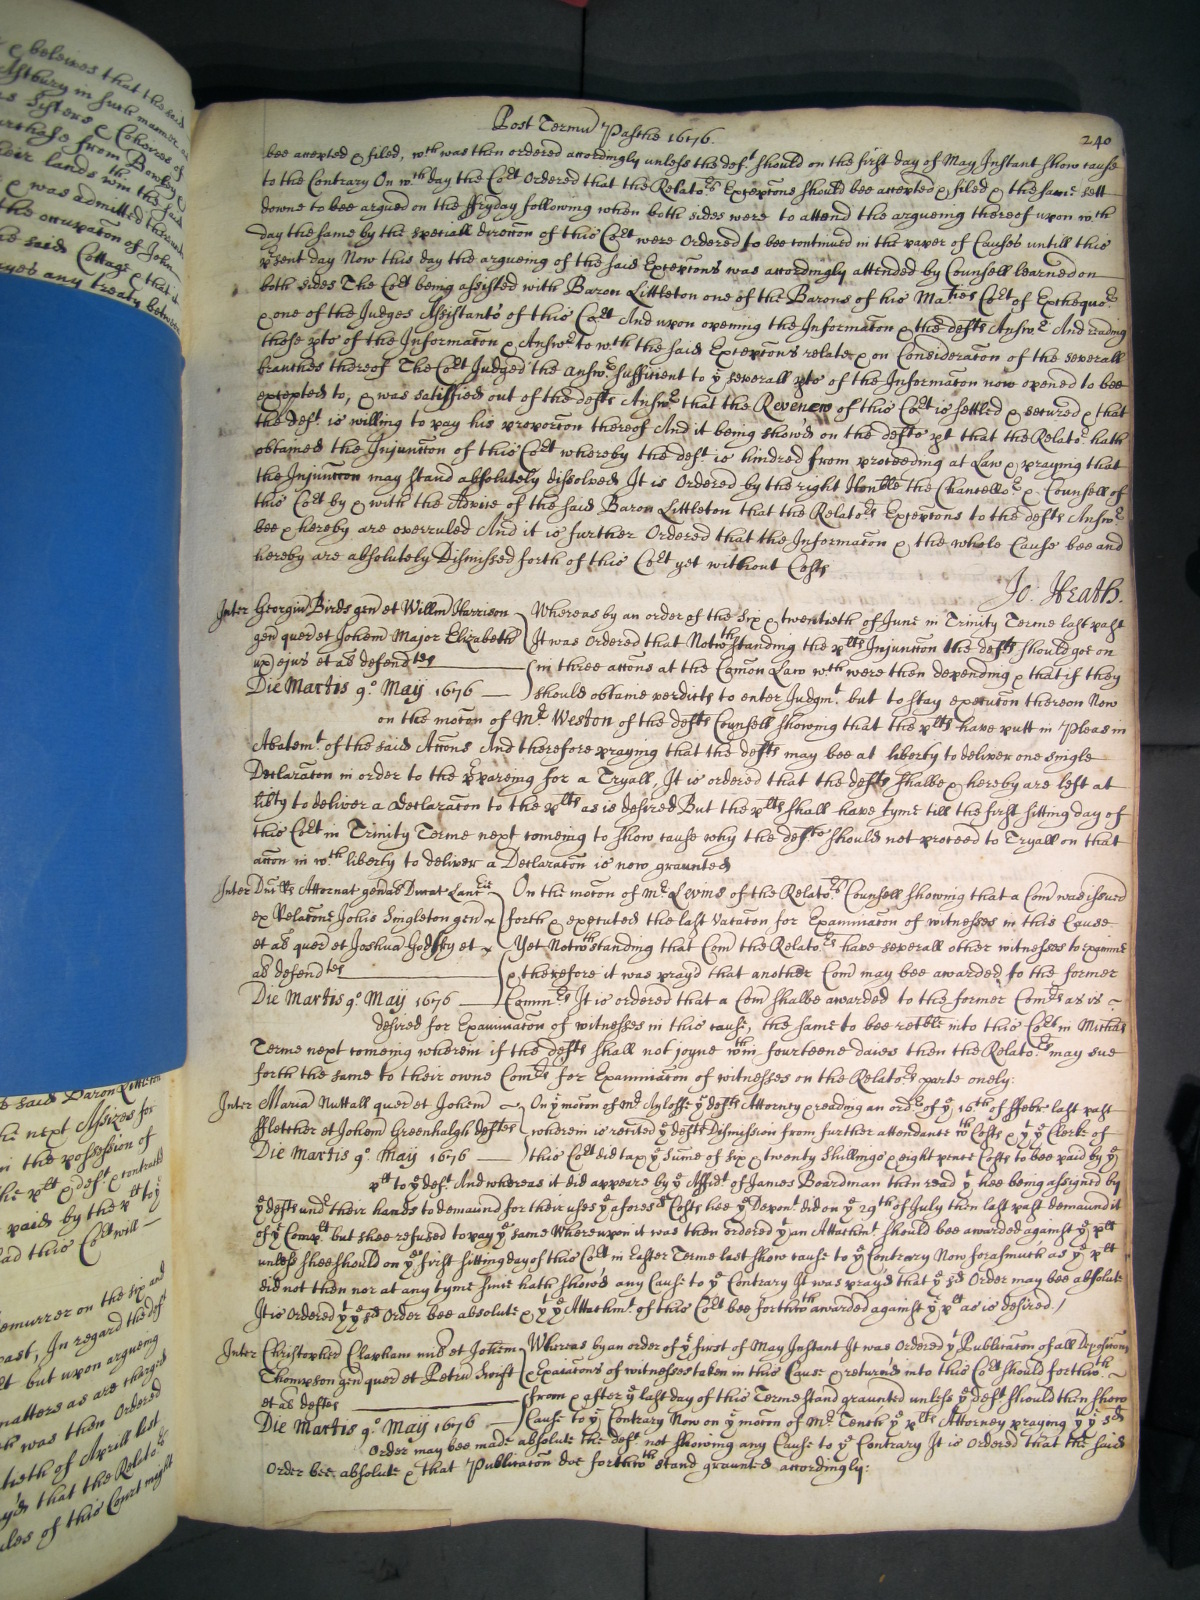 & beleives that the said
Astbury in such manner
Sisters & Coheires of
purchase from
their lands wthin the said
& was admitted
the occupacon of John
the said Cottage & that
any treaty betweene
Post Terminu Paschæ 1676.
240
bee accepted & filed, wch was then ordered accordingly unless the deft should on the first day of May Instant show cause
to the Contrary On wch day the Cort Ordered that the Relators Excepcons should bee accepted & filed & the same sett
downe to bee argued on the ffryday following when both sides were to attend the argueing thereof upon wch
day the same by the speciall direccon of this Cort were Ordered to bee continued in the paper of Causes untill this
psent day Now this day the argueing of the said Excepcons was accordingly attended by Counsell learned on
both sides The Cort being assisted with Baron Littleton one of the Barons of his Maties Cort of Exchequor
& one of the Judges Assistants of this Cort And upon opening the Informacon & the defts Answr And reading
those pts of the Informacon & Answr to wch the said Excepcons relate & on Consideracon of the severall
branches thereof The Cort Judged the answr sufficient to ye severall pts of the Informacon now opened to bee
excepted to, & was satisfied out of the defts Answr that the Revenew of this Cort is settled & secured & that
the deft is willing to pay his proporcon thereof And it being show'd on the defts pt that the Relator hath
obtained the Injunccon of this Cort whereby the deft is hindred from proceeding at Law & praying that
the Injunccon may stand absolutely dissolved It is Ordered by the right Honble the Chancellor & Counsell of
this Cort by & with the Advise of the said Baron Littleton that the Relators Excepcons to the defts Answr
bee & hereby are overruled And it is further Ordered that the Informacon & the whole Cause bee and
hereby are absolutely Dismissed forth of this Cort yet without Costs
Jo: Heath.
Inter Georgiu Birds gen et Willm Harrison
gen quer et Johem Major Elizabeth
ux ejus et al defendtes
Die Martis 9o May 1676
Whereas by an order of the six & twentieth of June in Trinity Terme last past
It was Ordered that Notwthstanding the plts Injunccon the defts should goe on
in three accons at the Comon Law wch were then depending & that if they
should obtaine verdicts to enter Judgmt but to stay execucon thereon Now
on the mocon of Mr Weston of the defts Counsell showing that the plts have putt in Pleas in
Abatemt of the said Accons And therefore praying that the defts may bee at liberty to deliver one single
Declaracon in order to the ppareing for a Tryall, It is ordered that the defts shalbe & hereby are left at
libty to deliver a declaracon to the plts as is desired But the plts shall have tyme till the first sitting day of
this Cort in Trinity Terme next comeing to show cause why the defts should not proceed to Tryall on that
accon in wch liberty to deliver a Declaracon is now graunted
Inter Attornat genal Ducat Lancr
ex Relacone Johis Singleton gen
et al quer et Joshua Godsky et
al defendtes
Die Martis 9o May 1676
On the mocon of Mr Levins of the Relators Counsell showing that a Com was issued
forth & executed the last Vacacon for Examinacon of witnesses in this Cause
Yet Notwthstanding that Com the Relators have severall other witnesses to examine
& therefore it was prayd that another Com may bee awarded to the former
Commrs It is ordered that a Com shalbe awarded to the former Comrs as is
desired for Examinacon of witnesses in this cause, the same to bee retble into this Cort in Michas
Terme next comeing wherein if the defts shall not joyne wthin fourteene daies then the Relators may sue
forth the same to their owne Comrs for Examinacon of witnesses on the Relators parte onely:
Inter Maria Nuttall quer et Johem
ffletcher et Johem Greenhalgh deftes
Die Martis 9o May 1676
On ye mocon of Mr Ayloffe ye defts Attorney & reading an ordr of ye 16th of ffebr last past
wherein is recited ye defts Dismission from further attendance wth Costs & yt ye Clerk of
this Cort did tax ye sume of six & twenty shillings & eight pence Costs to bee paid by ye
plt to ye deft And whereas it did appeare by ye Affidt of James Boardman then read yt hee being assigned by
ye defts under their hands to demaund for their uses ye aforesd Costs hee ye Deponent did on ye 29th of July then last past demaund it
of ye Complt but shee refused to pay ye same Whereupon it was then ordered yt an Attachmt should bee awarded against ye plt
unless shee should on ye first sitting day of this Cort in Easter Terme last show cause to ye Contrary Now forasmuch as ye plt
did not then nor at any tyme since hath show'd any Cause to ye Contrary It was pray'd that ye sd Order may bee absolute
It is Ordered yt ye sd Order bee absolute & yt ye Attachmt of this Cort bee forthwth awarded against ye plt as is desired /
Inter Christopherum Clapham mil et Johem
Thompson gen quer et Petru Swift
et al deftes
Die Martis 9o May 1676
Whereas by an order of ye first of May Instant It was Ordered yt Publicacon of all Deposicons
Exaiacons of witnesses taken in this Cause & return'd into this Cort should forthwth
from & after ye last day of this Terme stand graunted unless ye deft should then show
Cause to ye Contrary Now on ye mocon of Mr Tench ye plts Attorney praying yt ye sd
Order may bee made absolute the deft not showing any Cause to ye Contrary It is Ordered that the said
Order bee absolute & that Publicacon doe forthwth stand graunted accordingly:
said Baron Littleton
the next Assizes for
in the possession of
the plt & deft
paid by the plt to ye
and this Cort will
demurrer on the six and
past, In regard the deft
but upon argueing
matters as are charged
was then Ordered
of Aprill last
that the Relators
rules of this Court might